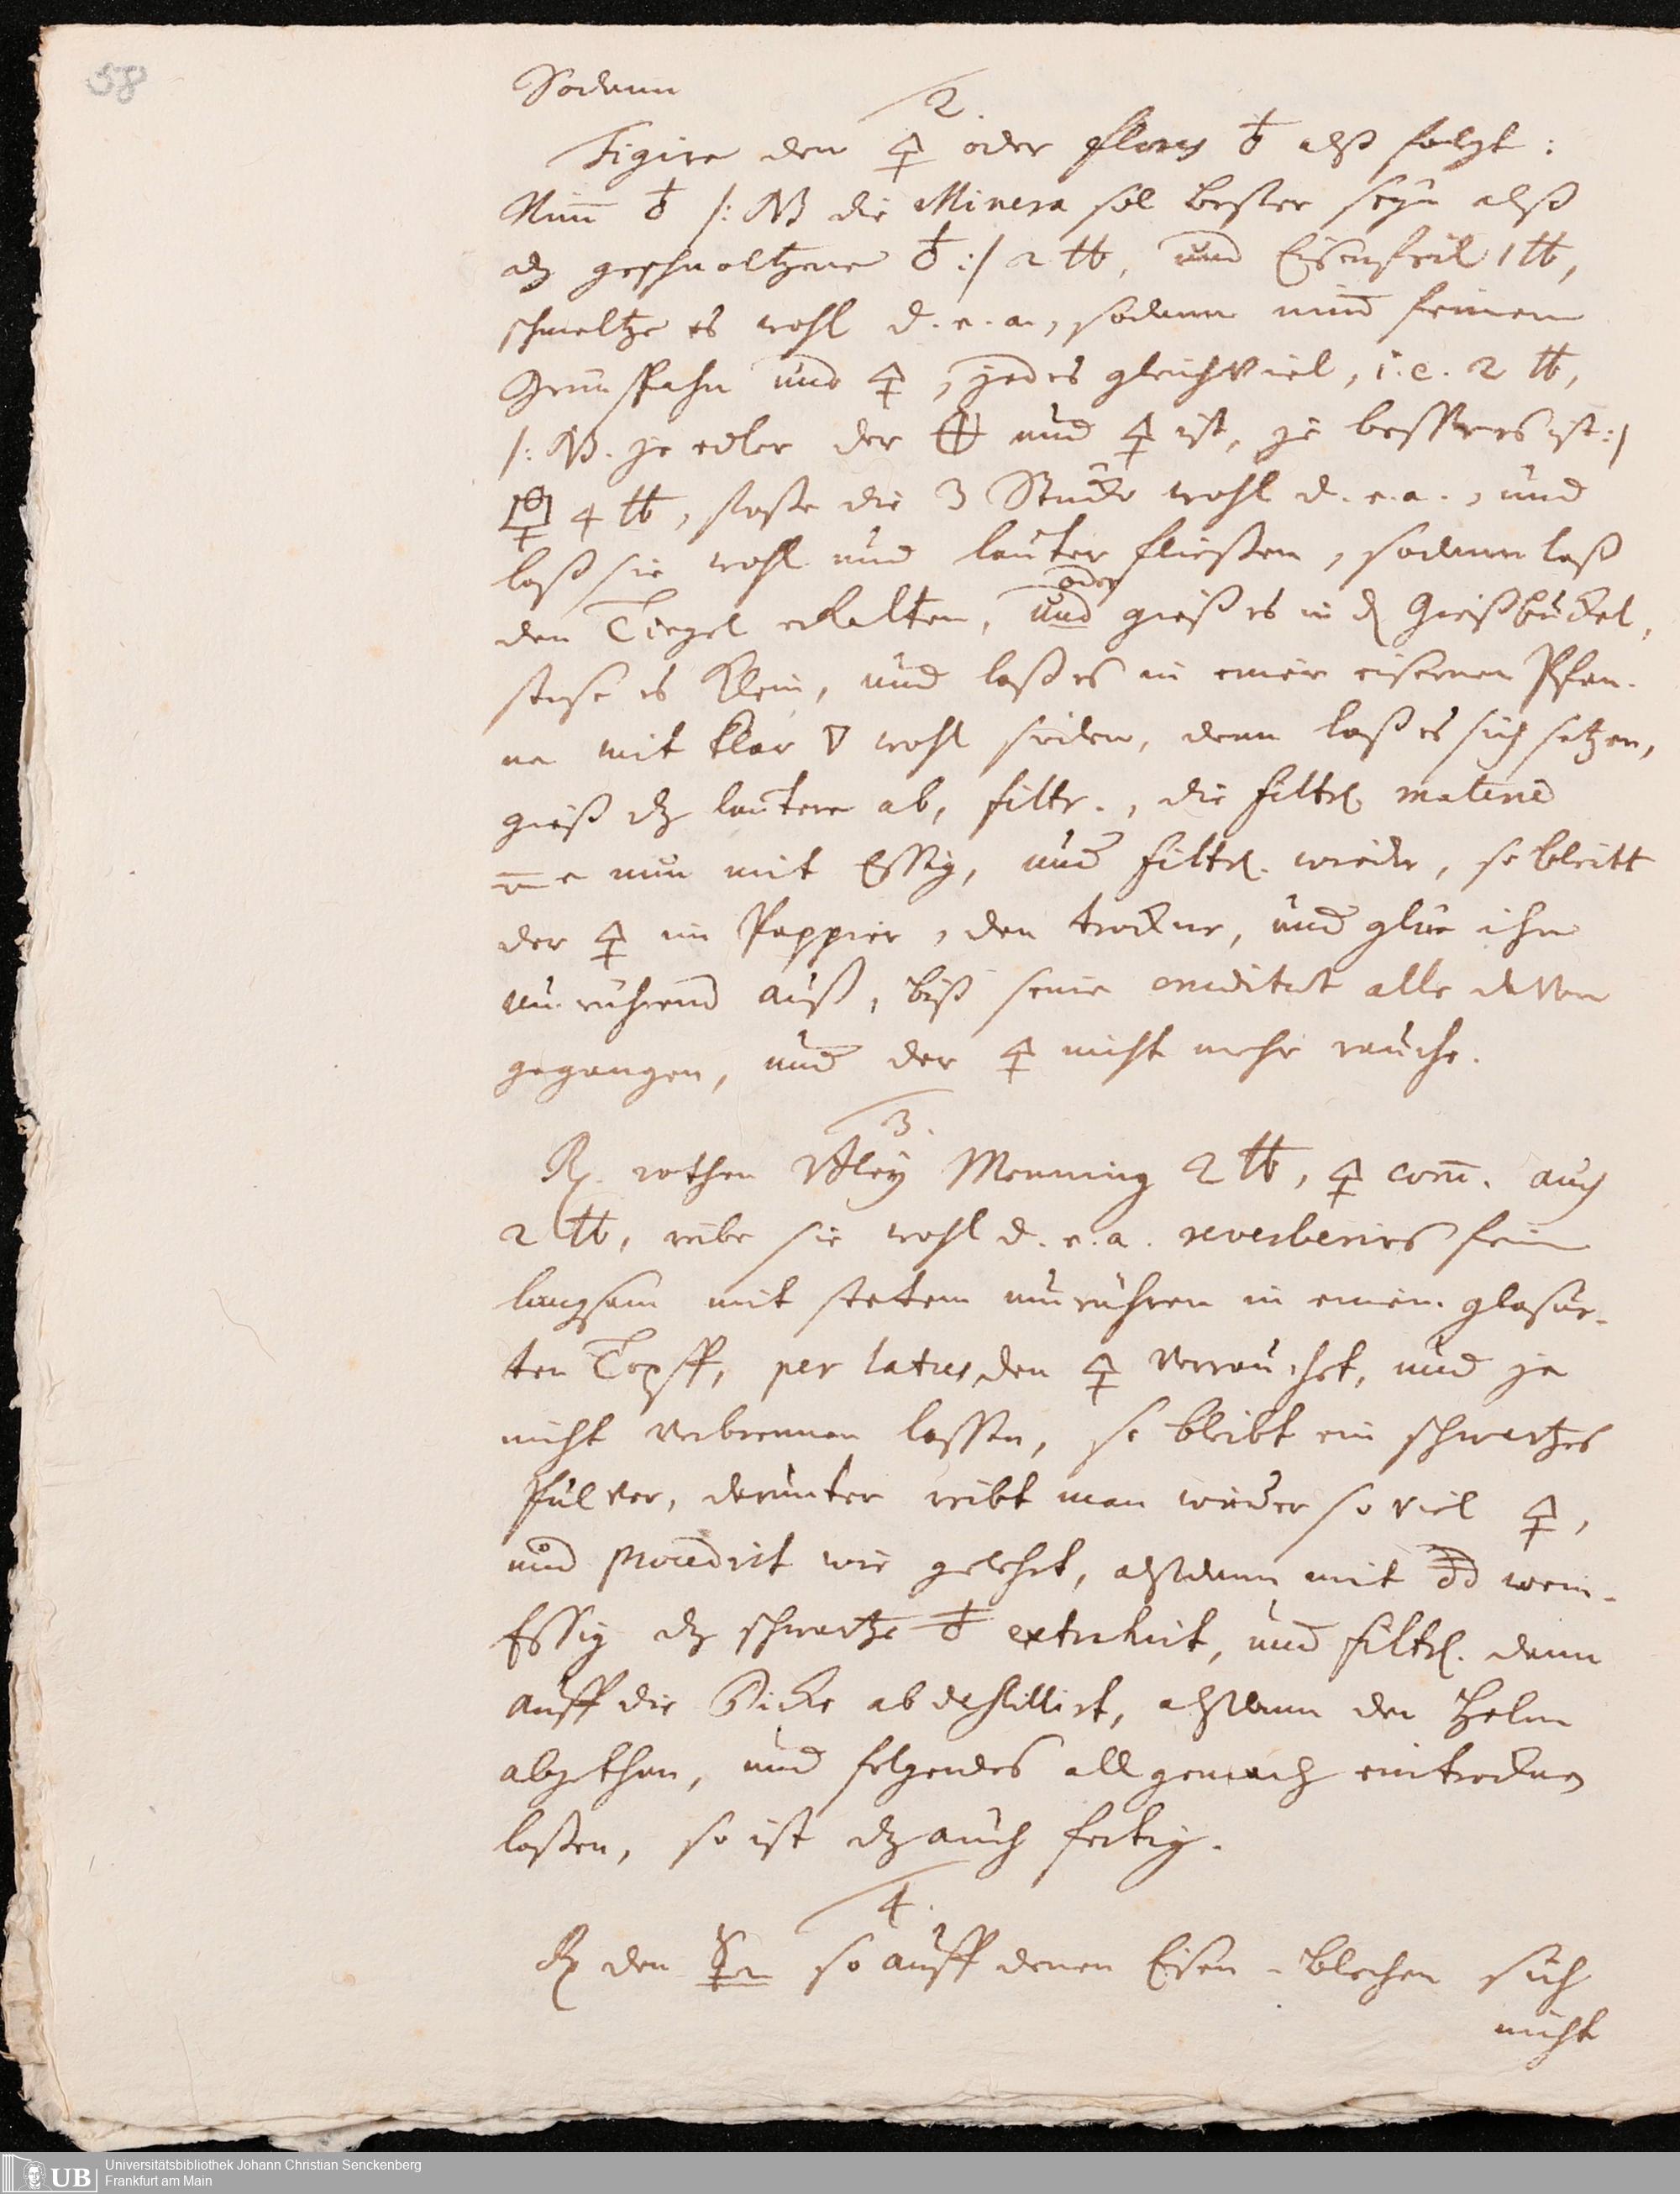 58
Sodann
2.
Figire den 🜍 oder flores ♁ alß folgt:
Nim̄ ♁ /: NB die Minera sol beßer seÿn alß
dz geschmoltzene ♁ :/ 2 ℔, und Eisenfeil 1 ℔,
schmeltze es wohl d. e. a., sodann nim̄ feinen
Grünspahn und 🜍, jedes gleichviel, i. e. 2 ℔,
/: NB. je edler der 🜨 und 🜍 ist, je beßer es ist :/
4 ℔, stoße die 3 Stücke wohl d. e. a., und
laß sie wohl und lauter fließen, sodann laß
oder
den Tiegel erkalten, und gieß es in d Gießbuckel,
stoße es klein, und laß es in einer eisernen Pfan-
ne mit klar 🜄 wohl sieden, dann laß es sich setzen,
gieß dz lautere ab, filtr., die filtr. materie
nun mit Eßig, und filtr. wieder, so bleibt
der 🜍 im Pappier, den trockne, und glüe ihn
um rührend auß, biß seine cruditæt alle davon
gegangen, und der 🜍 nicht mehr rauche.
3.
℞. rothen Bleÿ Menning 2 ℔, 🜍 com̄. auch
2 ℔, reibe sie wohl d. e. a. reverberirs fein
langsam mit stetem umrühren in einem glasur-
ten Topff, per latus den 🜍 verrauchet, und ja
nicht verbrennen laßen, so bleibt ein schwartzes
Pulver, darunter reibt man wieder so viel 🜍,
und procedirt wie gelehrt, alßdann mit wein-
Eßig dz schwartze ♁ extrahirt, und filtr. dann
auff die Dicke abdestillirt, alßdann den Helm
abgethan, und folgendes allgemach eintrocknen
laßen, so ist dz auch fertig.
4.
℞ den so auff denen Eisen-Blechen sich
nicht
UB
Universitätsbibliothek Johann Christian Senckenberg
Frankfurt am Main